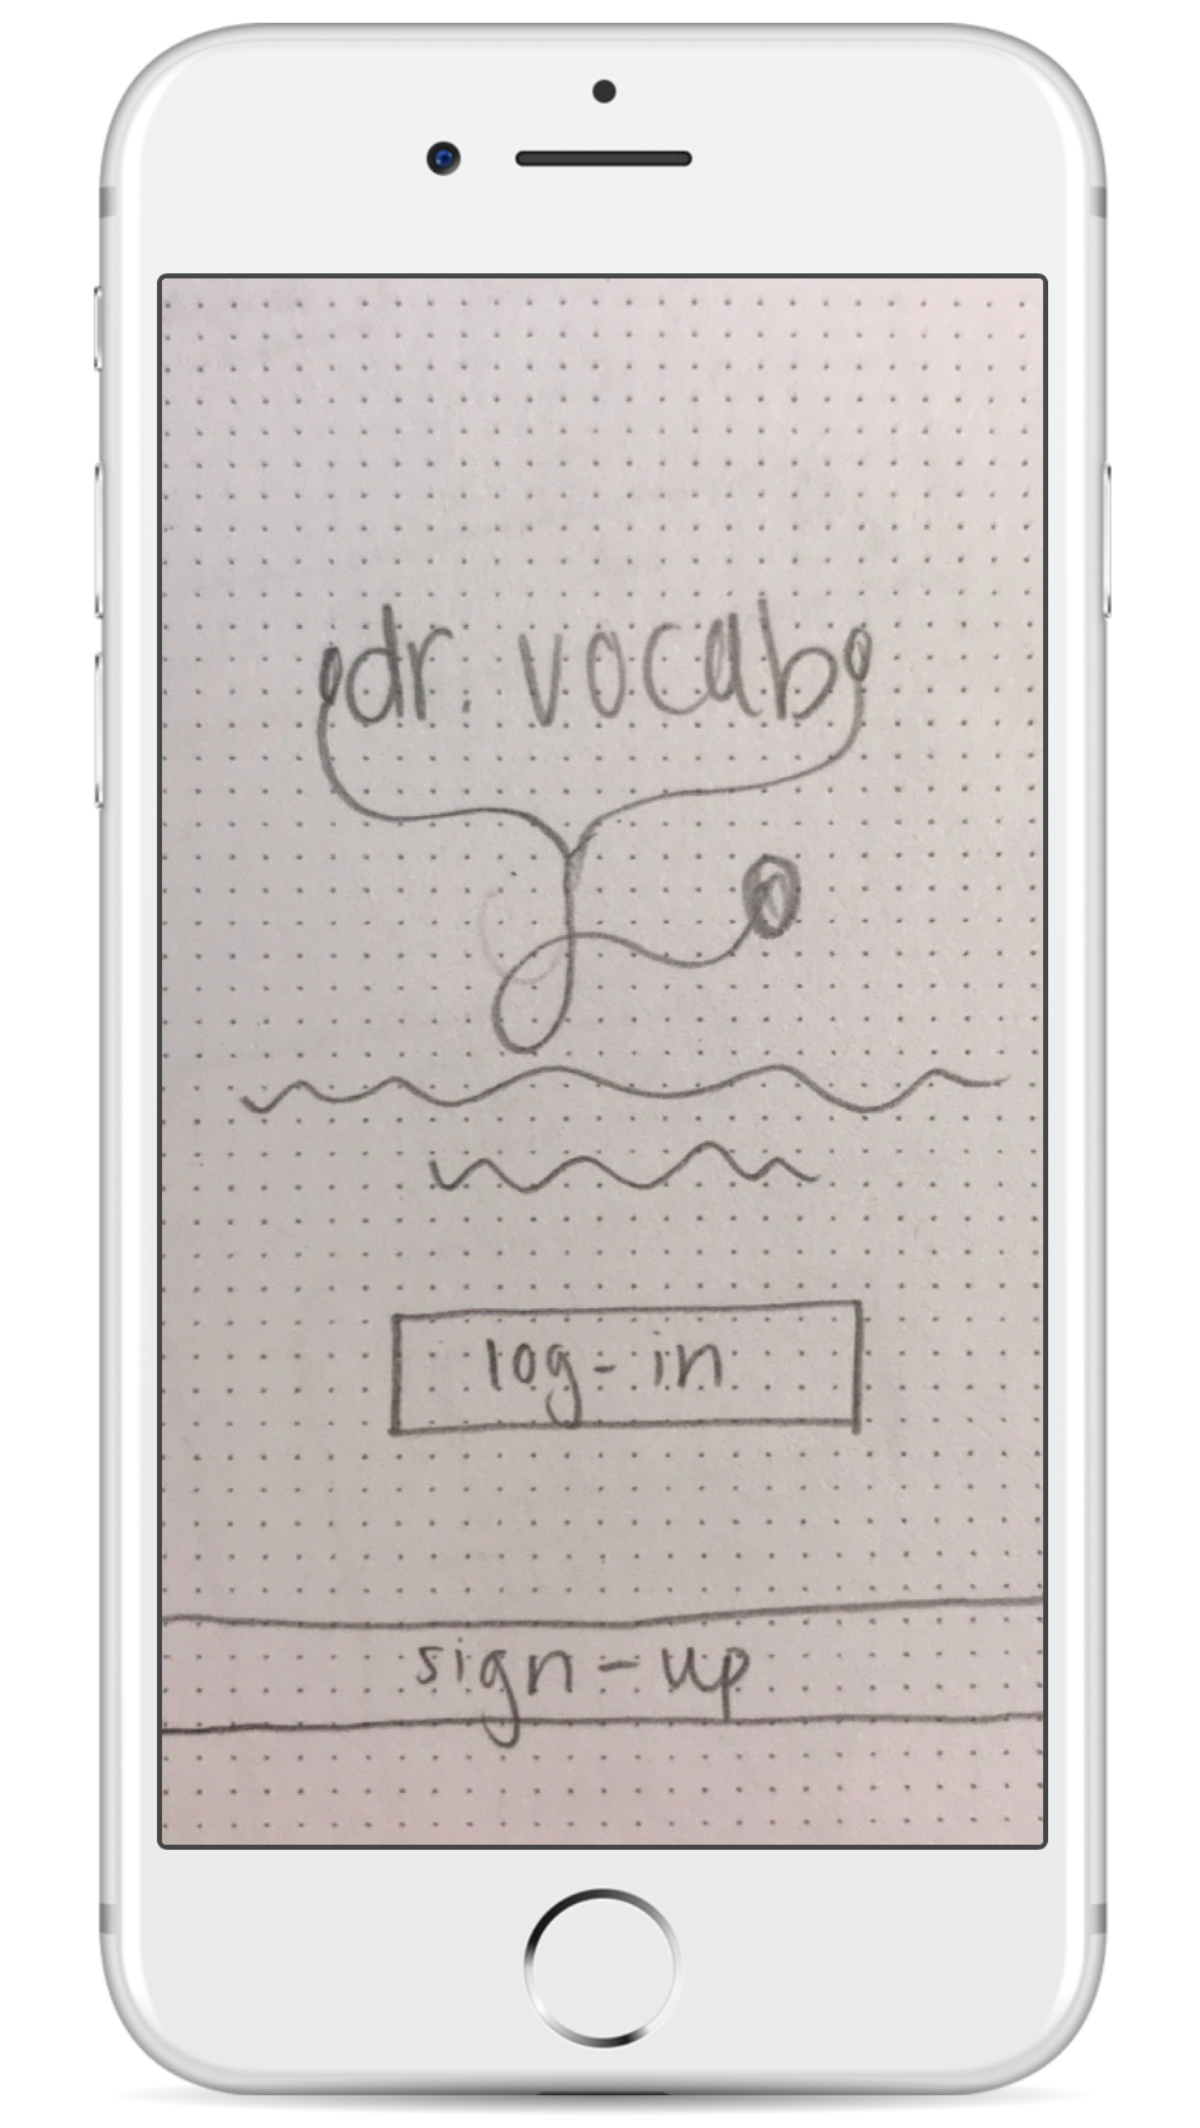 dr. vocab
log-in
sign-up